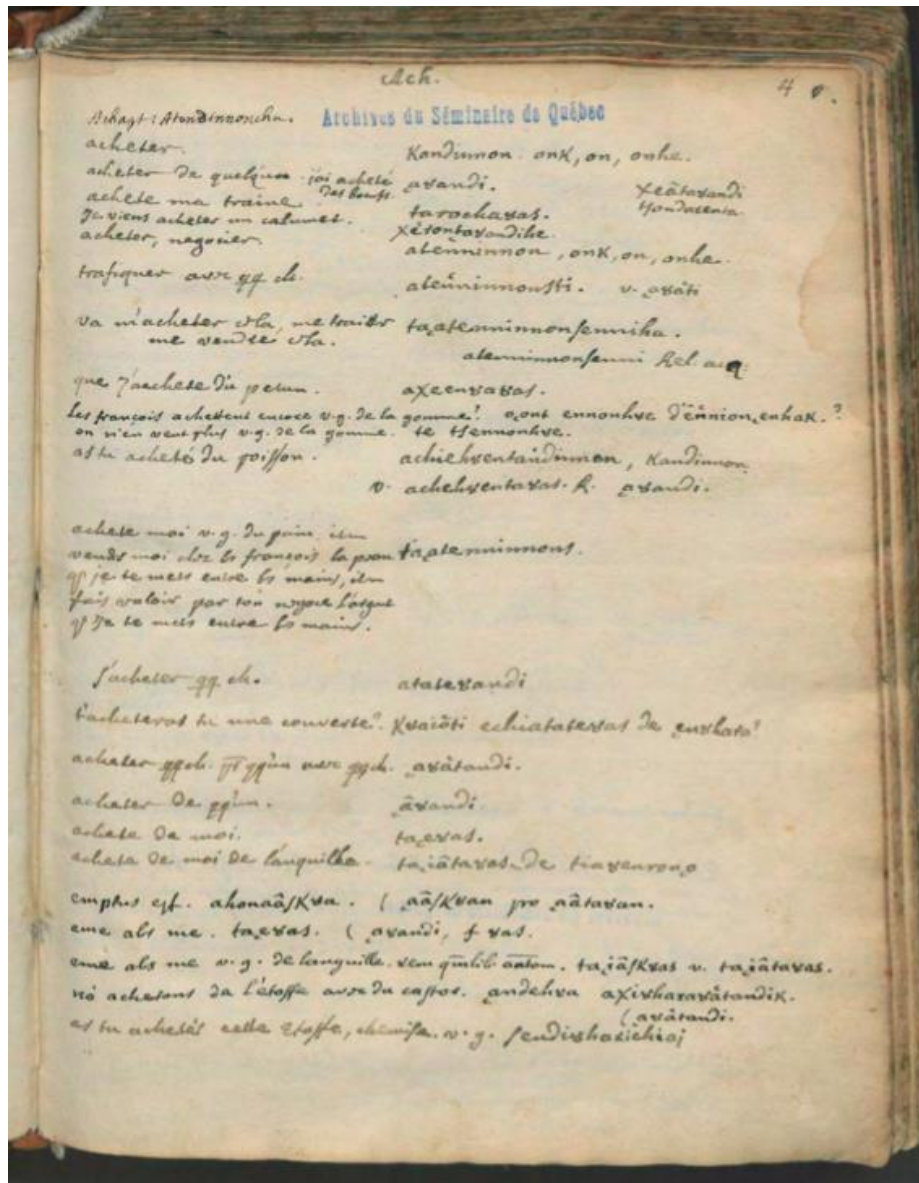 Ach.
4
Archives du Séminaire de Québec
Achapt: Atendinnoncha.
acheter. Kandinnon. onk, on, onhe.
acheter de quelqu'un. j'ai acheté des bœufs. aȣandi. xeâtaȣandi tsondaȣenta
achete ma traine. tarochaȣas.
je viens acheter un calumet. xêtontaȣandihe
acheter, negocier. atenninnon, onk, on, onhe.
trafiquer avec qq ch. atenninnonsti. v. aȣâti
va m'acheter cela, me traiter ta,atenninnonsenniha.
me vendre cela. atenninnonsenni Rel. acq.
que j'achete du petun. axeenȣaȣas.
les françois achettent encore v.g. de la gomme? ennonhȣe d'ennion,enhak.?
on n'en veut plus v.g. de la gomme. te tsennonhȣe.
as tu acheté du poisson. achiehȣentandinnon, Kandinnon
v. achehȣentaȣas. R. aȣandi.
achete moi v.g. du pain. itm
vends moi chez les françois la peau ta,atenninnons.
q je te mets entre les mains, itm
fais valoir par ton negoce l'argent
q je te mets entre les mains.
s'acheter qq ch. atateȣandi
t'acheteras tu une couverte? Kȣaiôti echiatateȣas de ,enȣhara?
acheter qqch. qq'un avec qqch. aȣâtandi.
acheter de qq'un. aȣandi.
achete de moi. ta,eȣas.
achete de moi de l'anguille. ta,iâtaȣas de tiaȣenrono
emptus est. ahonaâsKȣa. ( aâsKȣan pro aâtaȣan.
eme abs me. ta,eȣas. ( aȣandi, f ȣas.
eme abs me v.g. de l'anguille. rem ta,iâsKȣas v. ta,iâtaȣas.
no achetons de l'étoffe avec du castor. andehȣa axiȣharaȣâtandik.
( aȣâtandi.
as tu acheté cette étoffe, chemise. v.g.